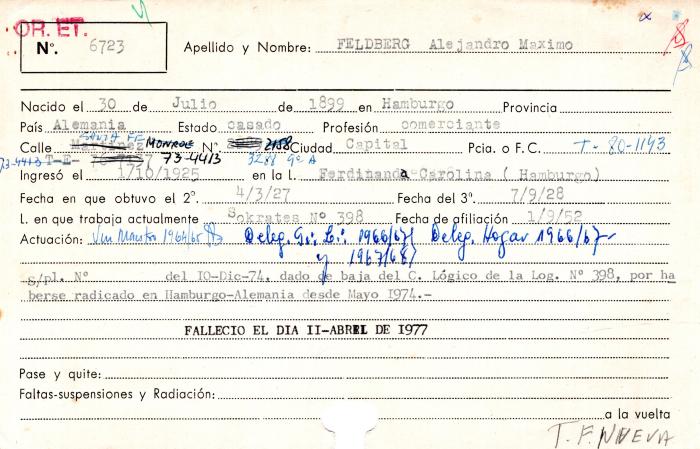 OR. ET.
N°. 6723
Apellido y Nombre: FELDBERG Alejandro Maximo
Nacido el 30 de Julio de 1899 en Hamburgo Provincia
País Alemania Estado casado Profesión comerciante
SANTA FE
Calle MONROE N° 2158 Ciudad Capital Pcia. o F.C. T- 80-1143
73-4413 T-E- 73-4413 3288 9° A
Ingresó el 1710/1925 en la l. Ferdinanda Carolina ( Hamburgo)
Fecha en que obtuvo el 2°. 4/3/27 Fecha del 3°. 7/9/28
L. en que trabaja actualmente Sokrates N° 398 Fecha de afiliación 1/9/52
Actuación: 1964/65 Deleg. G∴ L∴ 1966/67/ Deleg. Hogar 1966/67-
y 1967/68/
S/pl. N° del IO-Dic-74, dado de baja del C. Lógico de la Log. N° 398, por ha
berse radicado en Hamburgo-Alemania desde Mayo 1974.-
FALLECIO EL DIA II-ABREL DE I977
Pase y quite:
Faltas-suspensiones y Radiación:
a la vuelta
T. F. NUEVA